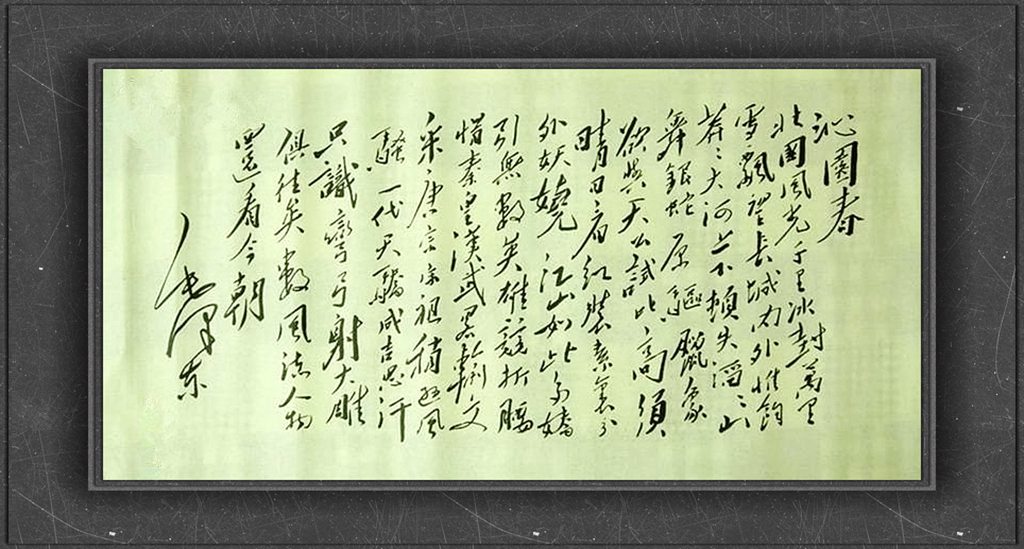 沁園春
北國風光千里冰封萬里
雪飄望長城内外惟餘
莽々大河上下頓失滔々山
舞銀蛇原驅臘象
欲與天公試比高須
晴日看紅裝素裹分
外妖嬈江山如此多嬌
引無數英雄競折腰
惜秦皇漢武畧輸文
采唐宗宋祖稍遜風
騷一代天驕成吉思汗
只識彎弓射大雕
俱往矣數風流人物
還看今朝
毛澤东